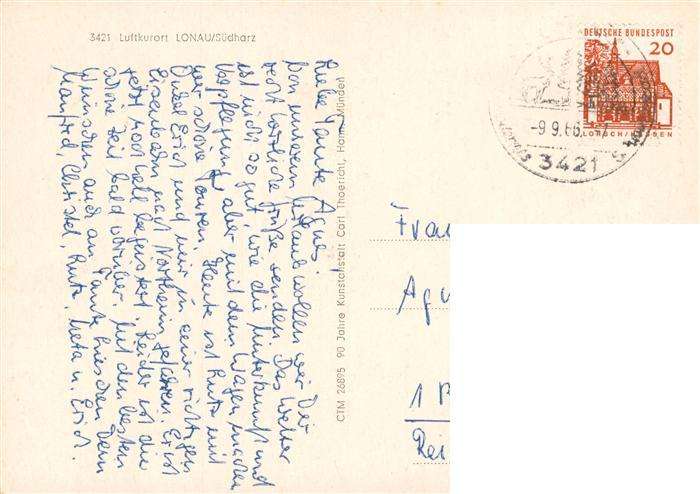 3421 Luftkurort LONAU/Südharz
Liebe Tante Agnes!
Von unserem Urlaub wollen wir Dir
recht herzliche Grüße senden. Das Wetter
ist nicht so gut, wie die Unterkunft und
Verpflegung, aber mit dem Wagen machen
wir schöne Touren. Heute ist Lutz mit
Onkel Erich und mir in einer richtigen
Eisenbahn nach Northeim gefahren. Er ist
jetzt noch hell begeistert. Leider ist die
schöne Zeit bald vorüber. Mit den besten
Wünschen auch an Tante Lieschen Dein
Manfred, Christel, Lutz, Meta u. Erich.
CTM 26895 90 Jahre Kunstanstalt Carl Thoericht, Hann. Münden
DEUTSCHE BUNDESPOST
20
LORSCH/HESSEN
-9.9.66.
3421
Frau
Agn
1 B
Rei